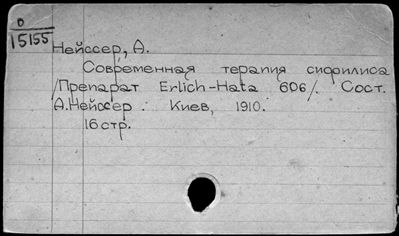 0
15155
Нейссер, А.
Современная терапия сифилиса
/Препарат Erlich-Hata 606/. Сост.
А.Нейссер. Киев, 1910.
16 стр.